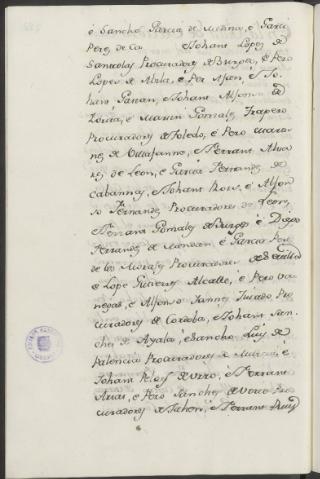 é Sancho Garcia de Medina, é Garci
Perez de Ca Johant Lopez de
Santotis Procuradores de Burgos, é Pero
Lopez de Abila, é Per Alfon, é Jo-
hant Gaitan, é Johant Alfonso de
é Martin Gonzalez Trapero
Procuradores de Toledo, é Pero
nez de Villafanne, é Ferrant Alva-
rez de Leon, é Garcia Fernandez de
Cabannas, é Johant é Alfon-
so Fernandez Procuradores de Leon,
é Ferrant Gonzalez é Diego
Ferrandez de Mendoza, é Garcia Perez
de los Morales Procuradores de Sevilla
é Lope Gutierrez Alcalle, é Pero Va-
negas, é Alfonso Jurado Pro-
curadores de Cordoba, é Johant San-
chez de Ayala, é Sancho Ruiz de
Palencia Procuradores de Murcia, é
Johant Pelaez de é Ferrant
Arias, é Pero Sanchez de Pro-
curadores de Jahen, é Ferrant Ruiz